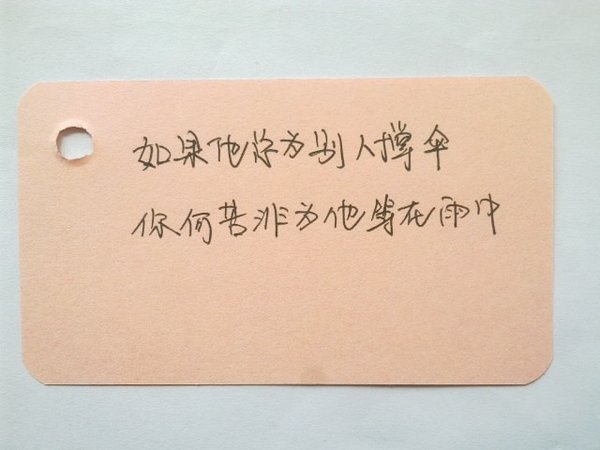 如果他总为别人撑伞
你何苦非为他等在雨中